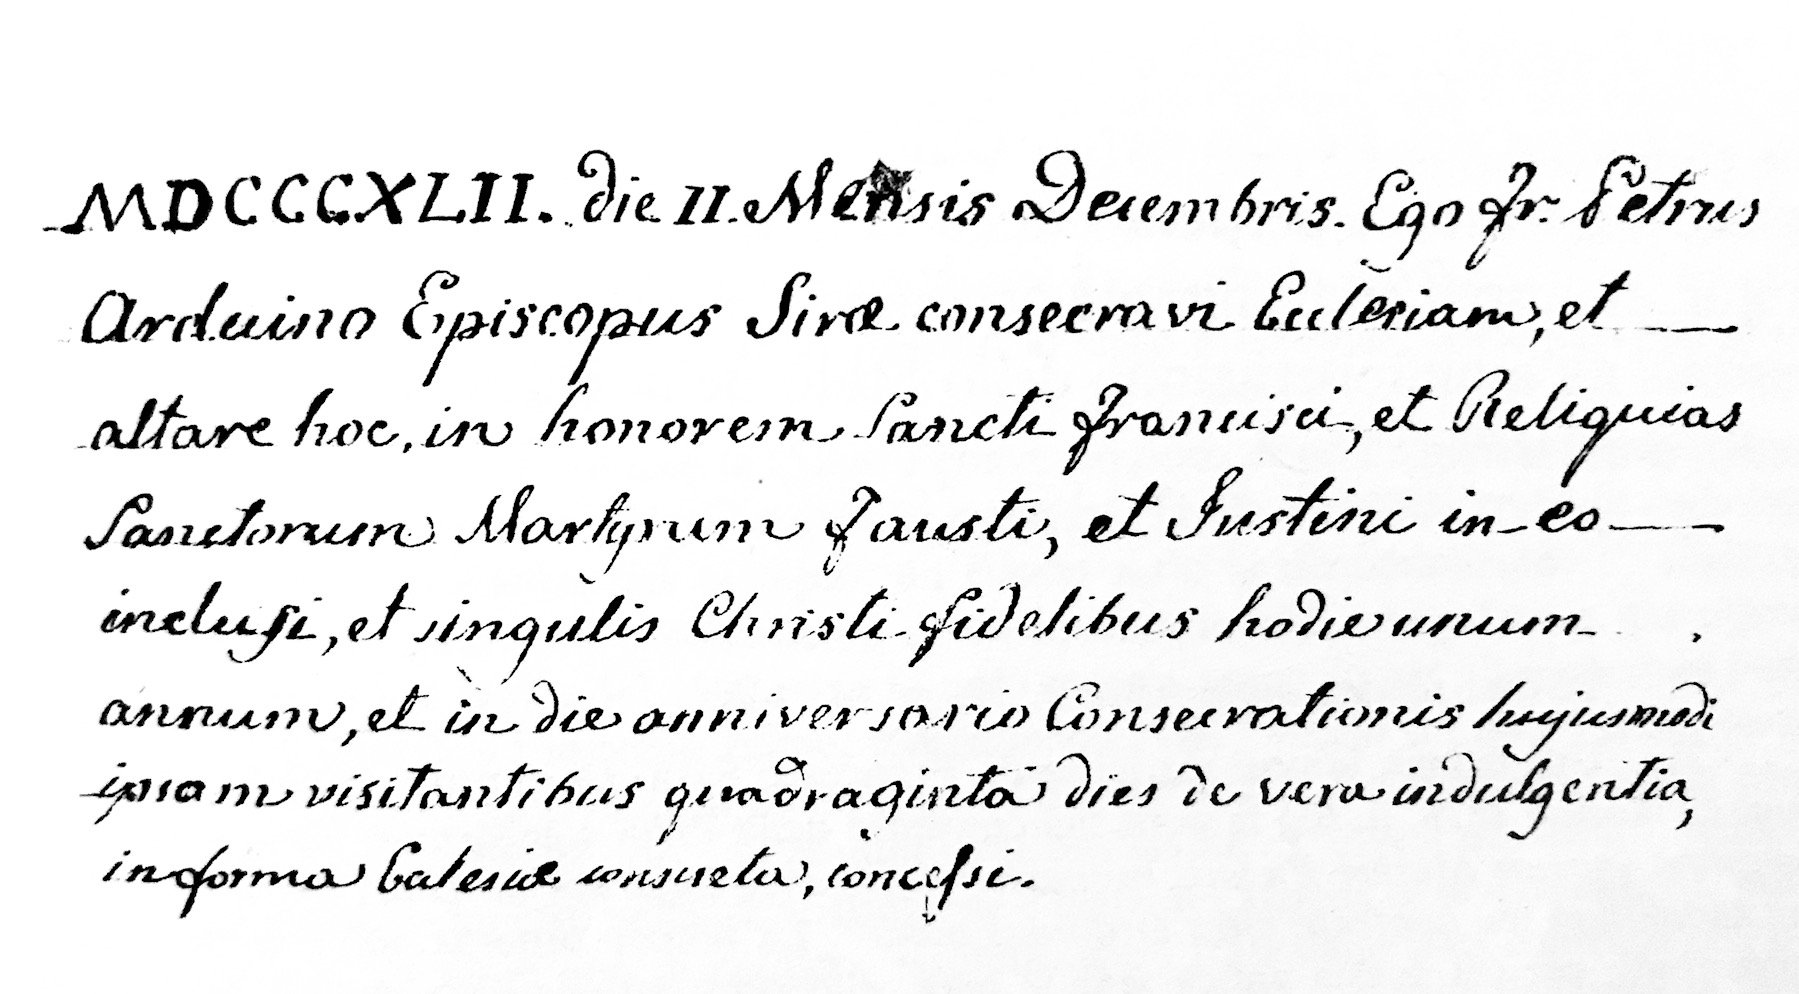 MDCCCXLII. die II. Mensis Decembris. Ego Fr. Petrus
Arduino Episcopus Siræ consecravi Ecclesiam, et
altare hoc, in honorem Sancti Francisci, et Reliquias
Sanctorum Martyrum Fausti, et Justini in eo
inclusi, et singulis Christi fidelibus hodie unum
annum, et in die anniversario Consecrationis hujusmodi
ipsam visitantibus quadraginta dies de vera indulgentia,
in forma Ecclesiæ consueta, concessi.